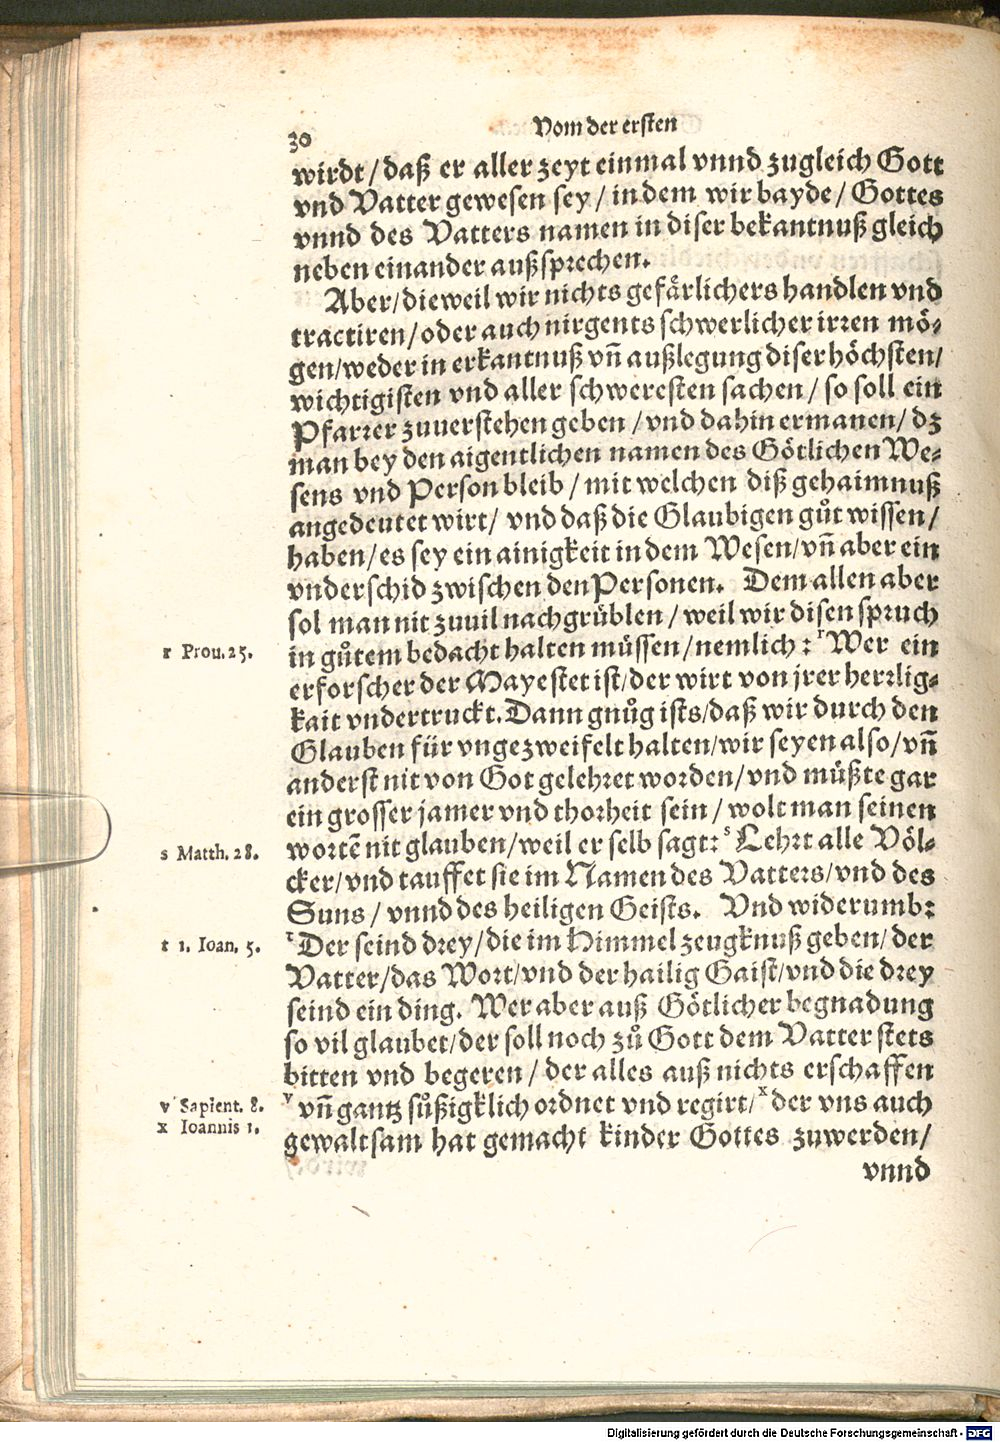 30
Vom der ersten
wirdt / daß er aller zeyt einmal vnnd zugleich Gott
vnd Vatter gewesen sey / in dem wir bayde / Gottes
vnnd des Vatters namen in diser bekantnuß gleich
neben einander außsprechen.
Aber / dieweil wir nichts gefärlichers handlen vnd
tractiren / oder auch nirgents schwerlicher irren mö-
gen / weder in erkantnuß vñ außlegung diser höchsten /
wichtigisten vnd aller schweresten sachen / so soll ein
Pfarrer zuuerstehen geben / vnd dahin ermanen / dz
man bey den aigentlichen namen des Götlichen We-
sens vnd Person bleib / mit welchen diß gehaimnuß
angedeutet wirt / vnd daß die Glaubigen gůt wissen /
haben / es sey ein ainigkeit in dem Wesen / vñ aber ein
vnderschid zwischen den Personen. Dem allen aber
sol man nit zuuil nachgrüblen / weil wir disen spruch
r Prou. 25. in gůtem bedacht halten müssen / nemlich : ʳWer ein
erforscher der Mayestet ist / der wirt von jrer herrlig-
kait vndertruckt. Dann gnůg ists / daß wir durch den
Glauben für vngezweifelt halten / wir seyen also / vñ
anderst nit von Got gelehret worden / vnd müßte gar
ein grosser jamer vnd thorheit sein / wolt man seinen
s Matth. 28. wortẽ nit glauben / weil er selb sagt: ˢLehrt alle Völ-
cker / vnd tauffet sie im Namen des Vatters / vnd des
Suns / vnnd des heiligen Geists. Vnd widerumb:
t 1. Ioan. 5. ᵗDer seind drey / die im Himmel zeugknuß geben / der
Vatter / das Wort / vnd der hailig Gaist / vnd die drey
seind ein ding. Wer aber auß Götlicher begnadung
so vil glaubet / der soll noch zů Gott dem Vatter stets
bitten vnd begeren / der alles auß nichts erschaffen
v Sapient. 8. ᵛvñ gantz sůßigklich ordnet vnd regirt / ˣder vns auch
x Ioannis 1. gewaltsam hat gemacht kinder Gottes zuwerden /
vnnd
Digitalisierung gefördert durch die Deutsche Forschungsgemeinschaft - DFG